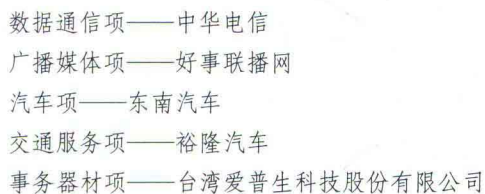 数据通信项——中华电信
广播媒体项——好事联播网
汽车项——东南汽车
交通服务项——裕隆汽车
事务器材项——台湾爱普生科技股份有限公司